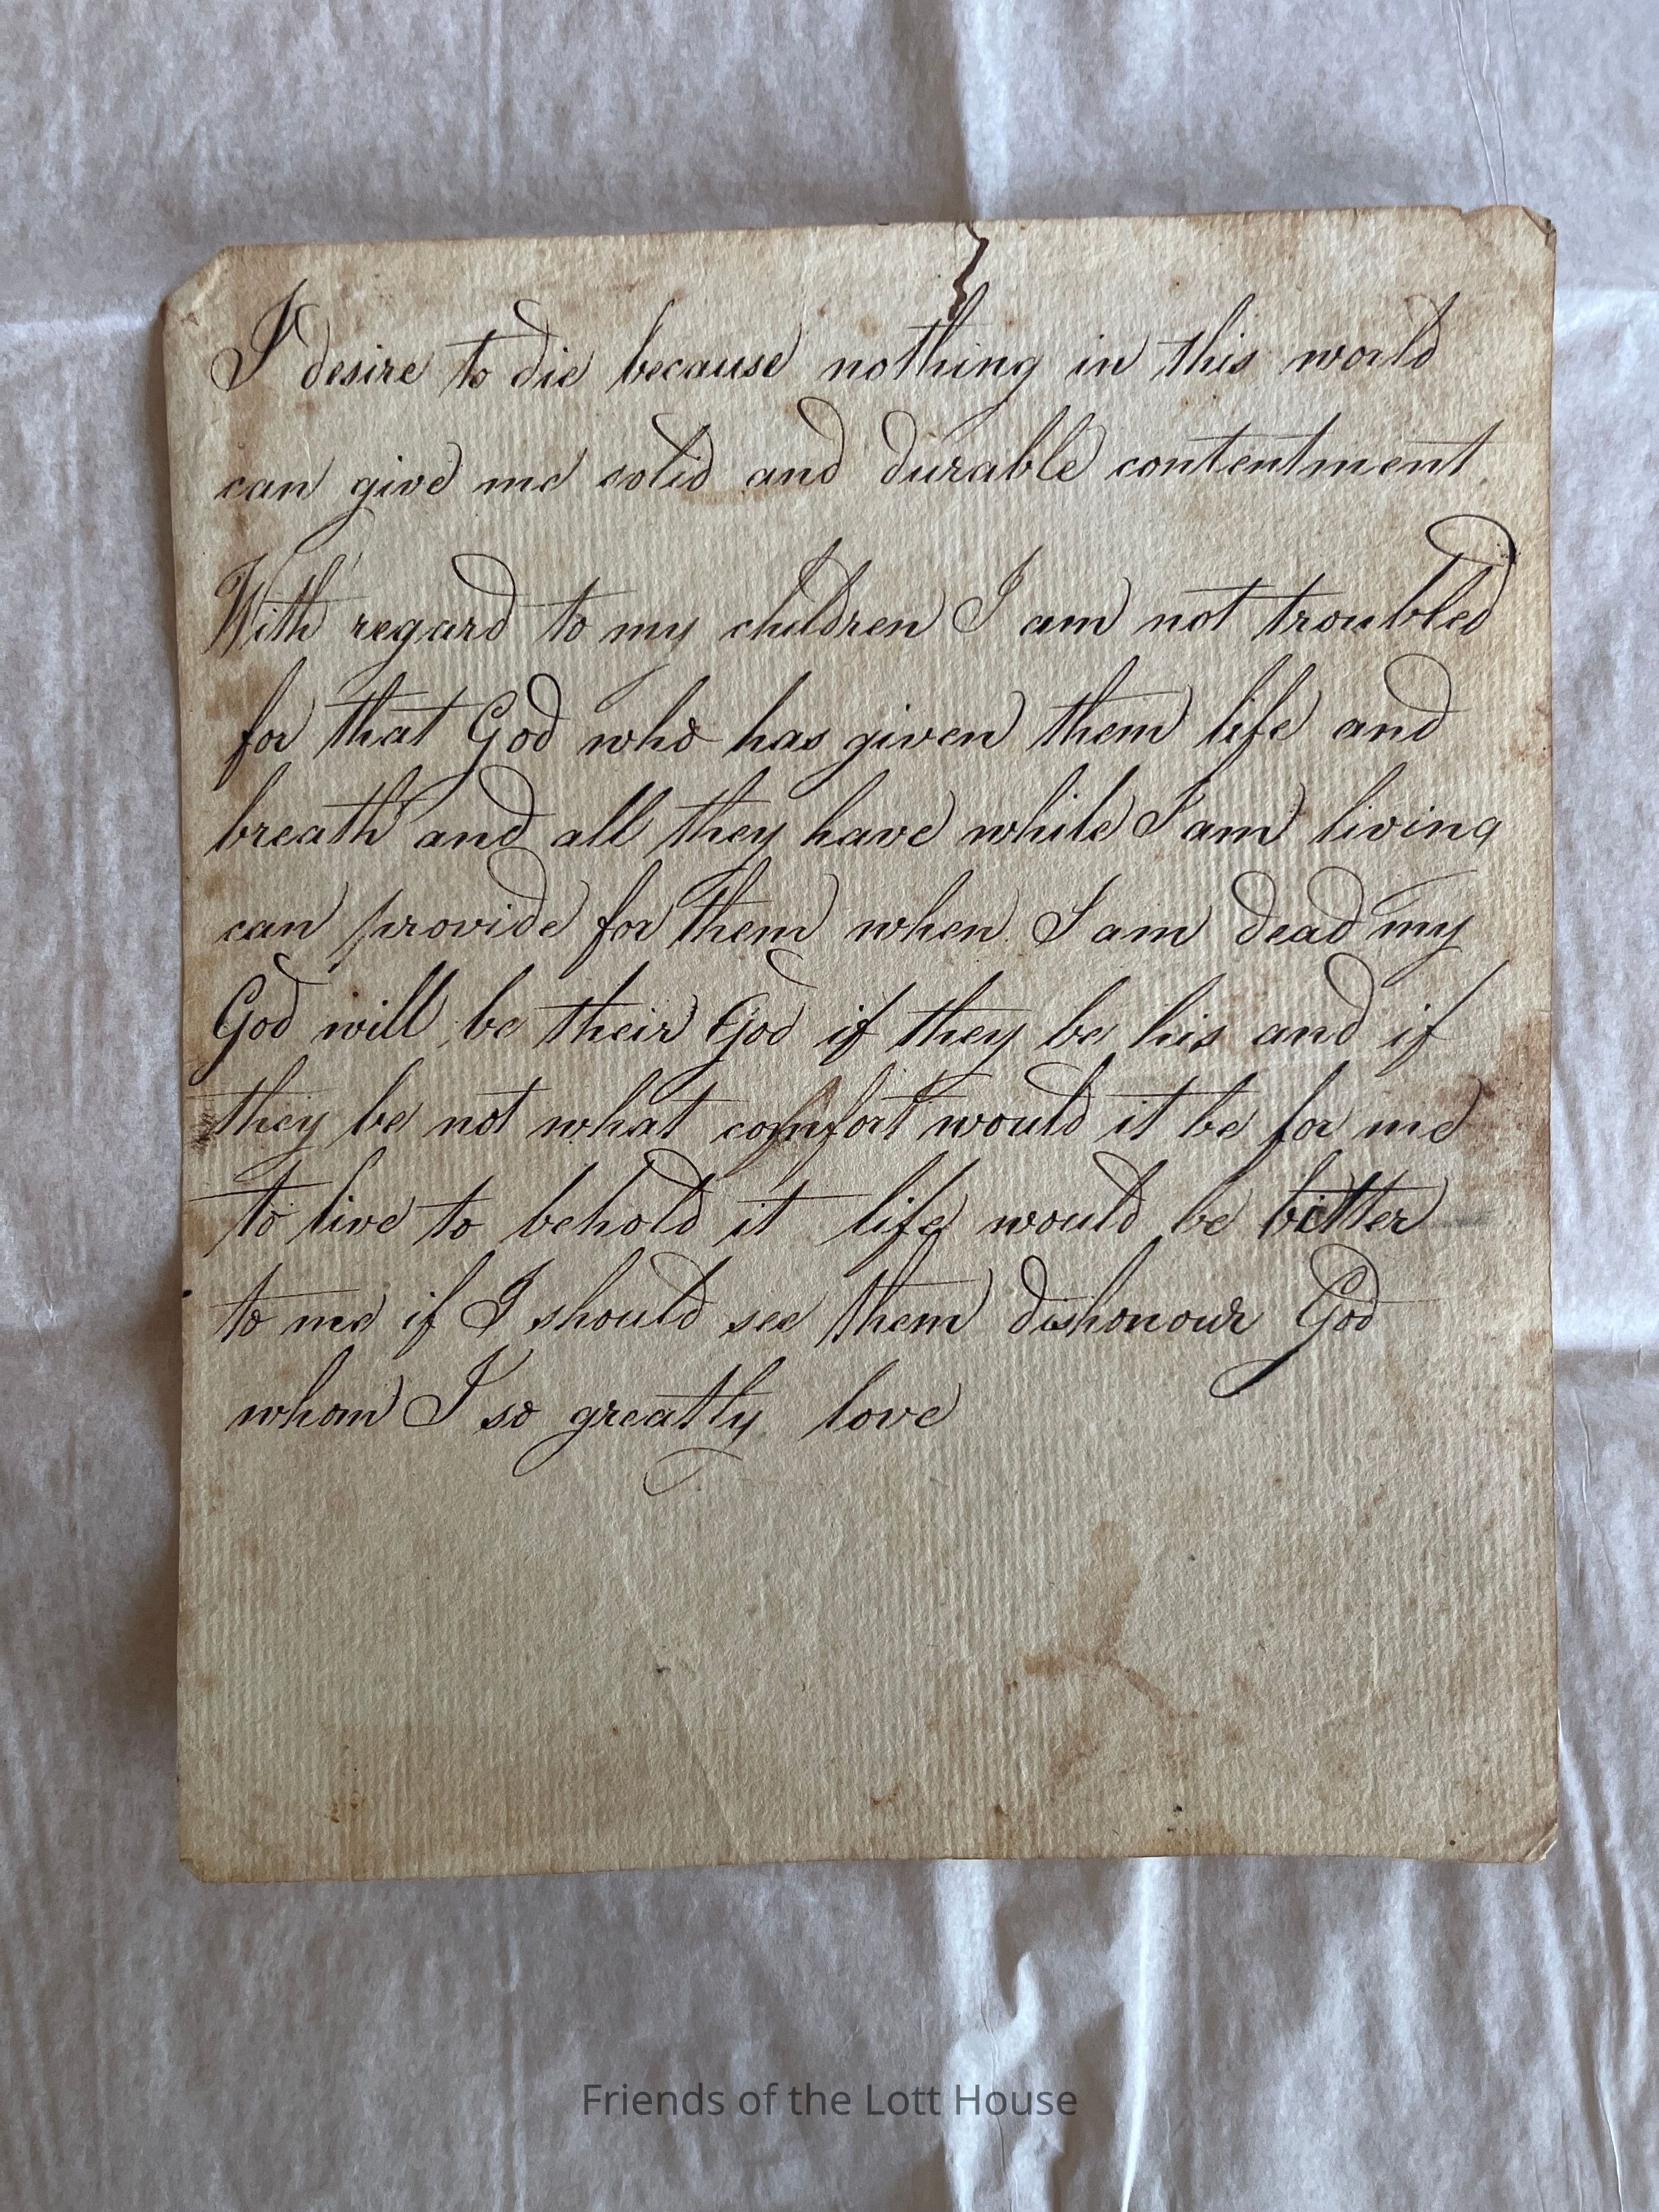 I desire to die because nothing in this world
can give me solid and durable contentment
With regard to my children I am not troubled
for that God who has given them life and
breath and all they have while I am living
can provide for them when I am dead my
God will be their God if they be his and if
they be not what comfort would it be for me
to live to behold it life would be bitter
to me if I should see them dishonour God
whom I so greatly love
Friends of the Lott House